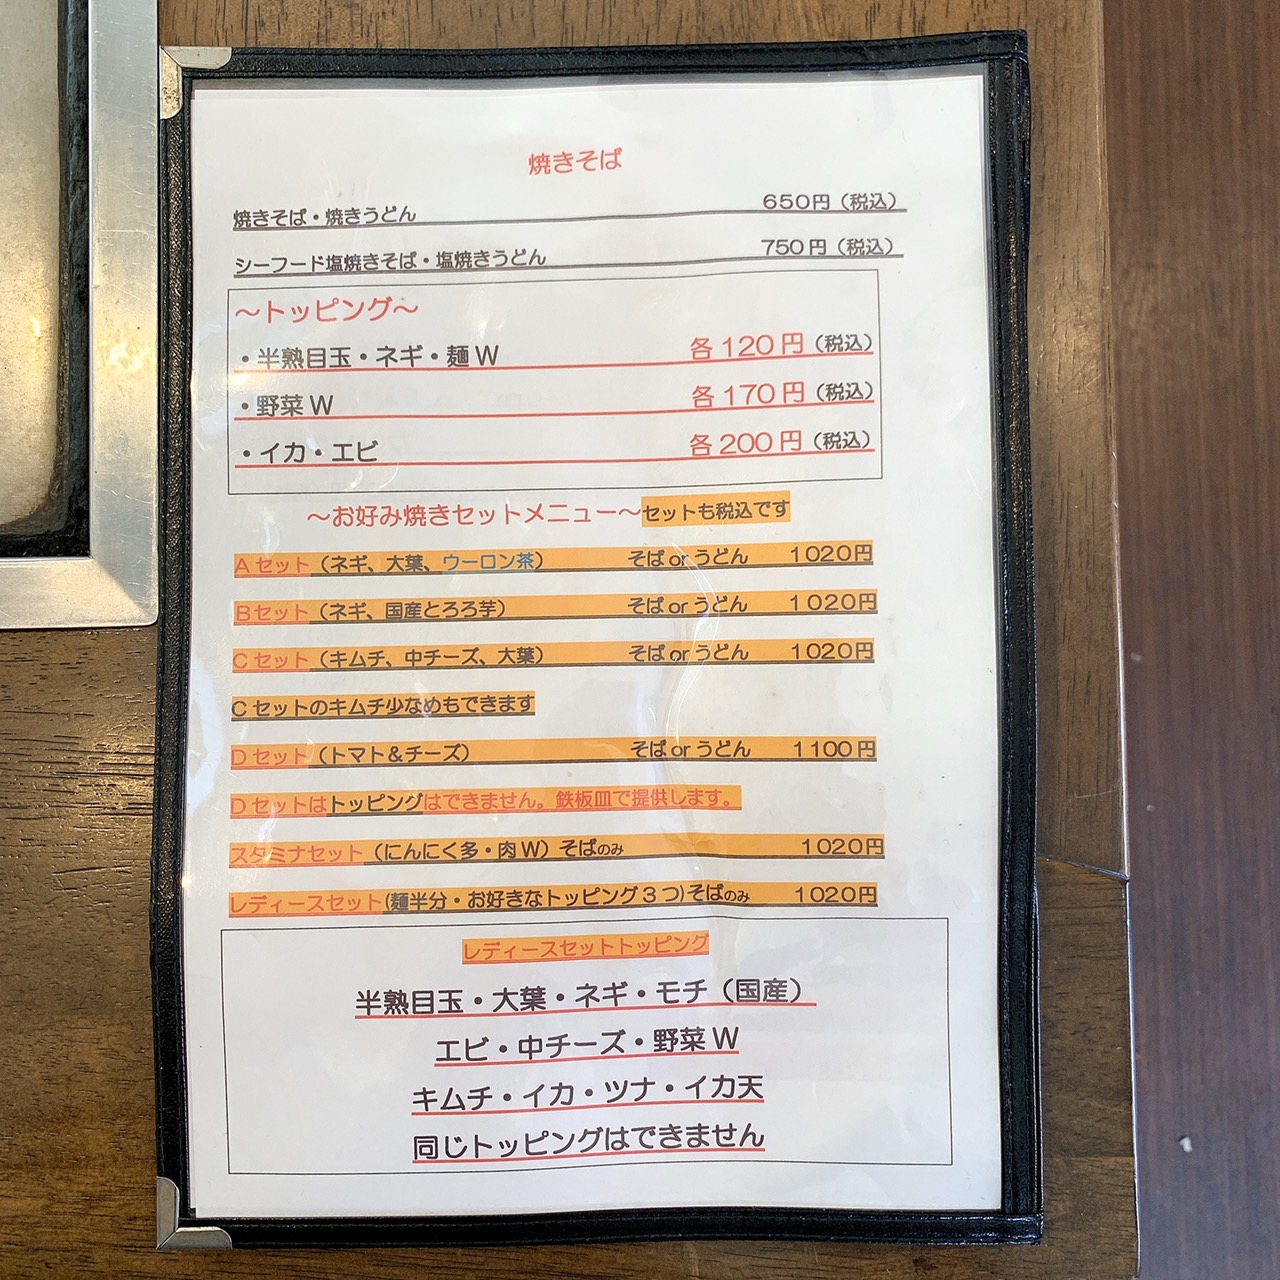 焼きそば
焼きそば・焼きうどん 650円（税込）
シーフード塩焼きそば・塩焼きうどん 750円（税込）
～トッピング～
・半熟目玉・ネギ・麺W 各120円（税込）
・野菜W 各170円（税込）
・イカ・エビ 各200円（税込）
～お好み焼きセットメニュー～セットも税込です
Aセット（ネギ、大葉、ウーロン茶） そばorうどん 1020円
Bセット（ネギ、国産とろろ芋） そばorうどん 1020円
Cセット（キムチ、中チーズ、大葉） そばorうどん 1020円
Cセットのキムチ少なめもできます
Dセット（トマト&チーズ） そばorうどん 1100円
Dセットはトッピングはできません。鉄板皿で提供します。
スタミナセット（にんにく多・肉W）そばのみ 1020円
レディースセット(麺半分・お好きなトッピング3つ)そばのみ 1020円
レディースセットトッピング
半熟目玉・大葉・ネギ・モチ（国産）
エビ・中チーズ・野菜W
キムチ・イカ・ツナ・イカ天
同じトッピングはできません